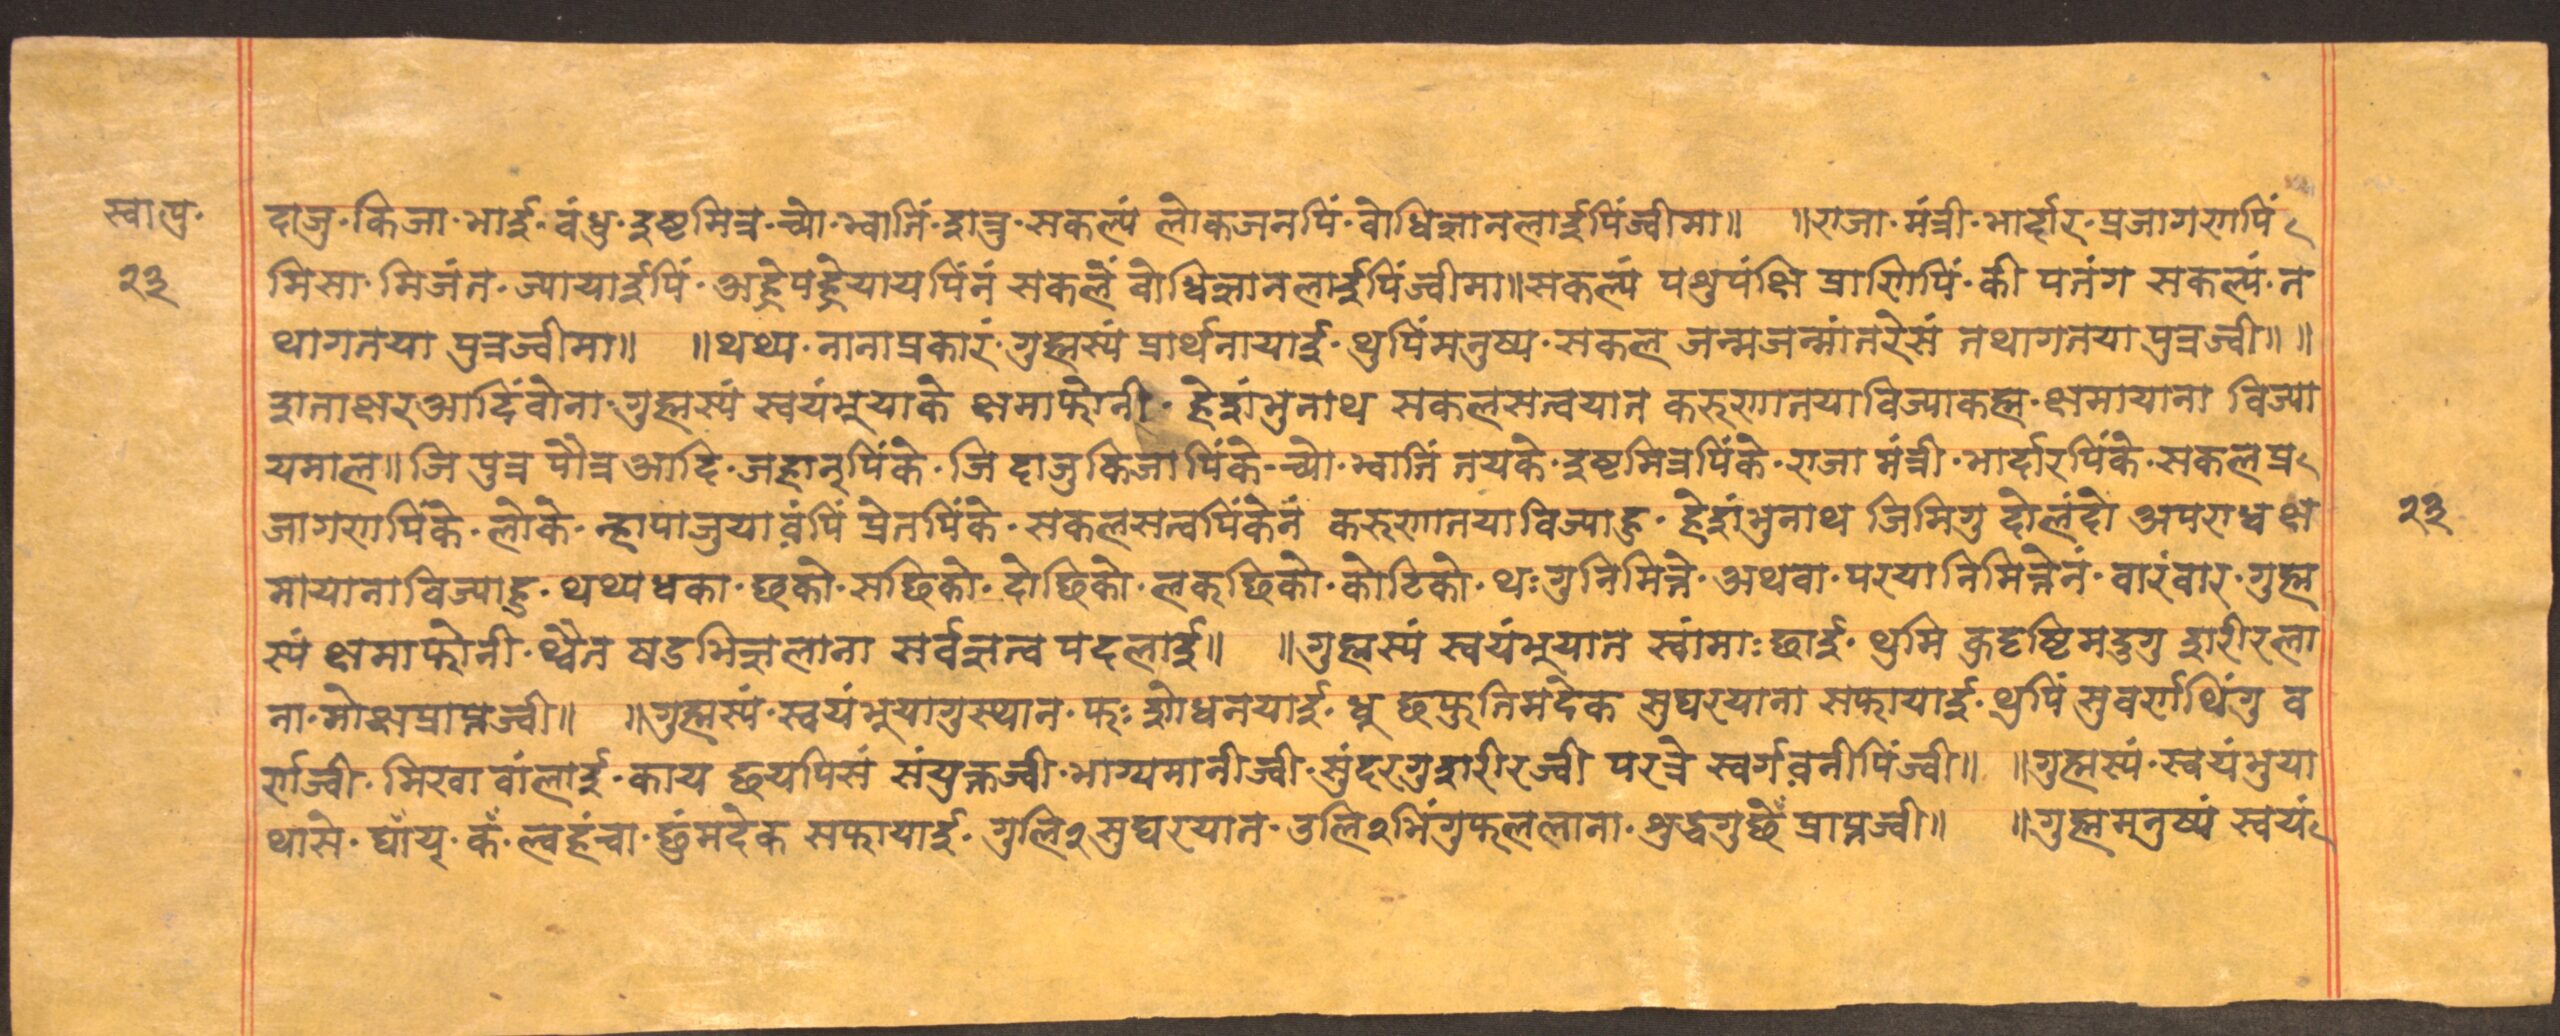 स्वा पु॰
२३
दाजु॰किजा॰भाई॰वंधु॰इष्टमित्र॰च्यो॰भ्वातिं॰शत्रु॰सकल्यं लोकजनपिं॰वोधिज्ञानलाईपिंज्वीमा॥ ॥राजा॰मंत्री॰भार्दार॰प्रजागणपिं
मिसा॰मिजंत॰ज्यायाईपिं॰अह्रेपह्रेयायपिंनं सकलें वोधिज्ञानलाईपिंज्वीमा॥सकल्यं पशुपंक्षि प्राणिपिं॰की पतंग सकल्यं॰त
थागतया पुत्रज्वीमा॥ ॥थथ्य॰नानाप्रकारं॰गुह्मस्यं प्रार्थनायाई॰थुपिंमनुष्य॰सकल जन्मजन्मांतरेसं तथागतया पुत्रज्वी॥ ॥
शताक्षरआदिंवोना॰गुह्मस्यं स्वयंभूयाके क्षमाफोनी॰हेशंभुनाथ सकलसत्वयात करुणातयाविज्याकह्म॰क्षमायाना विज्या
यमाल॥जि पुत्र पौत्रआदि॰जहानपिंके॰जि दाजुकिजापिंके॰च्यो॰भ्वातिं तयके॰इष्टमित्रपिंके॰राजा मंत्री॰भार्दारपिंके॰सकलप्र
जागणपिंके॰लोके॰न्हापाजुयावंपिं प्रेतपिंके॰सकलसत्वपिंकेनं करुणातयाविज्याहु॰हेशंभुनाथ जिमिगु दोलंदो अपराध क्ष
मायानाविज्याहु॰थथ्यधका॰छको॰सछिको॰दोछिको॰लकछिको॰कोटिको॰थःगुनिमित्ते॰अथवा॰परयानिमित्तेनं॰वारंवार॰गुह्म
स्यं क्षमाफोनी॰थ्वैत षडभिज्ञलाना सर्वज्ञत्व पदलाई॥ ॥गुह्मस्यं स्वयंभूयात स्वांमाःछाई॰थुमि क्रुदृष्टिमदुगु शरीरला
ना॰मोक्षप्राप्तज्वी॥ ॥गुह्मस्यं॰स्वयंभूयागुस्थान॰फः शोधनयाई॰धू छफुतिमदेक सुघरयाना सफायाई॰थुपिं सुवर्णथिंगु व
र्णज्वी॰मिखा वांलाई॰काय छयपिसं संयुक्तज्वी॰भाग्यमानीज्वी॰सुंदरगुशरीरज्वी परत्रे स्वर्गवनीपिंज्वी॥ ॥गुह्मस्यं॰स्वयंभुया
थासे॰घाँय्॰कँ॰ल्वहंचा॰छुंमदेक सफायाई॰गुलि२सुघरयात॰उलि२भिंगुफललाना॰शुद्धगुछेँ प्राप्तज्वी॥ ॥गुह्ममनुष्यं स्वयं
२३